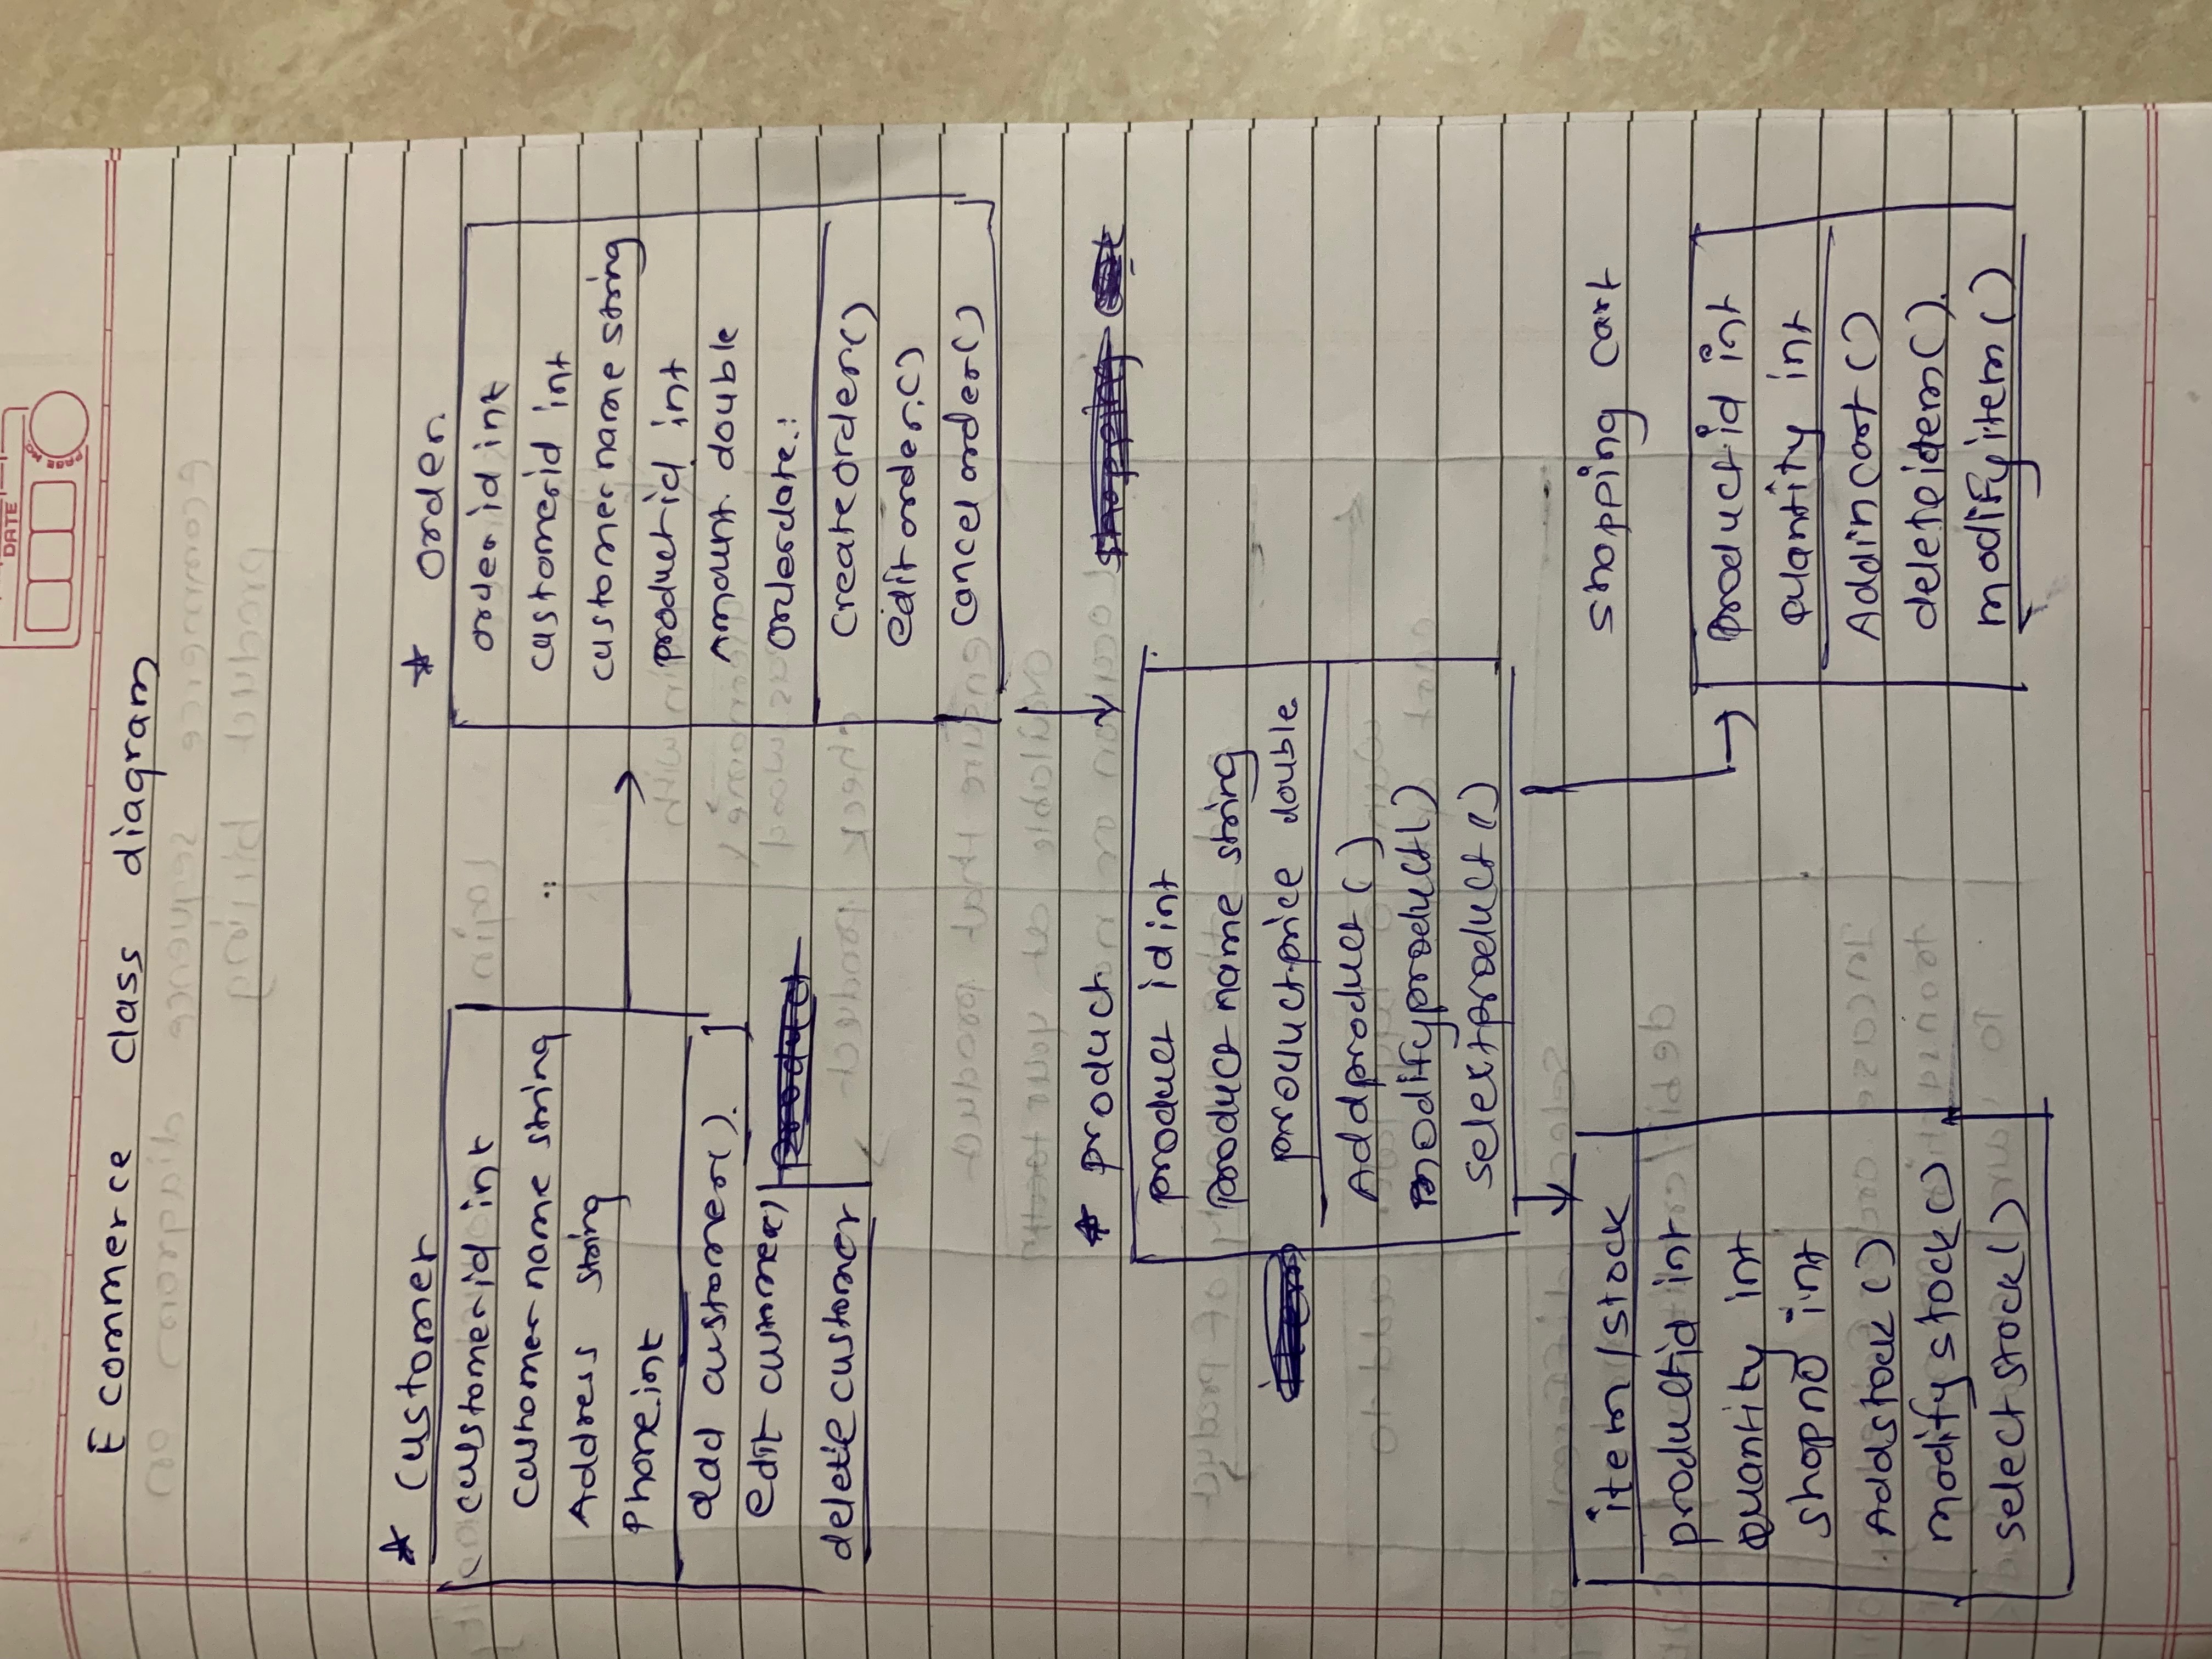 DATE
PAGE NO.
Ecommerce class diagram
* customer
customerid int
customer name string
Address string
Phone.int
add customer().
edit customer()
delete customer
* order.
order id int
customerid int
customer name string
product id int
Amount. double
Orderdate.:
createorder()
edit order.()
cancel order()
* product
product id int
product name string
product.price double
Addproduct()
modifyproduct()
selectproduct()
item/stock
productid int
quantity int
shopno int
Addstock()
modify stock()
select stock()
shopping cart
product.id int
quantity int
Addincart()
deleteidem().
modifyitem()